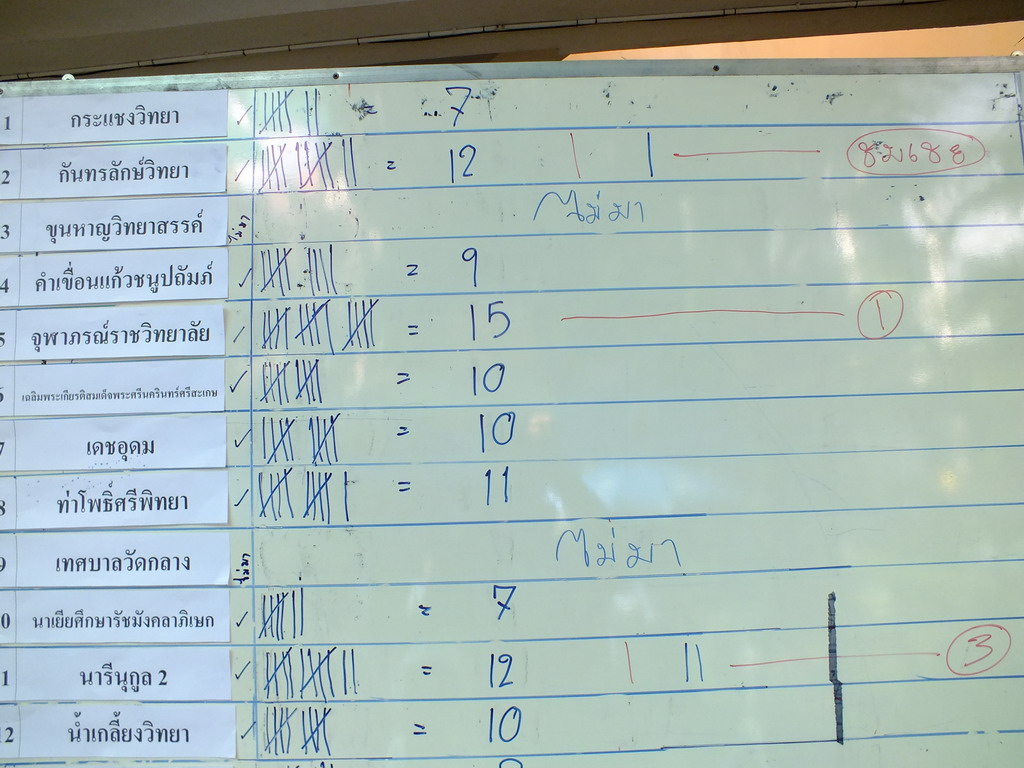 1 กระแชงวิทยา ✓ = 7
2 กันทรลักษ์วิทยา ✓ = 12 ชมเชย
3 ขุนหาญวิทยาสรรค์ ไม่มา ไม่มา
4 คำเขื่อนแก้วชนูปถัมภ์ ✓ = 9
5 จุฬาภรณ์ราชวิทยาลัย ✓ = 15 1
6 เฉลิมพระเกียรติสมเด็จพระศรีนครินทร์ศรีสะเกษ ✓ = 10
7 เดชอุดม ✓ = 10
8 ท่าโพธิ์ศรีพิทยา ✓ = 11
9 เทศบาลวัดกลาง ไม่มา ไม่มา
0 นาเยียศึกษารัชมังคลาภิเษก ✓ = 7
1 นารีนุกูล 2 ✓ = 12 3
12 น้ำเกลี้ยงวิทยา ✓ = 10